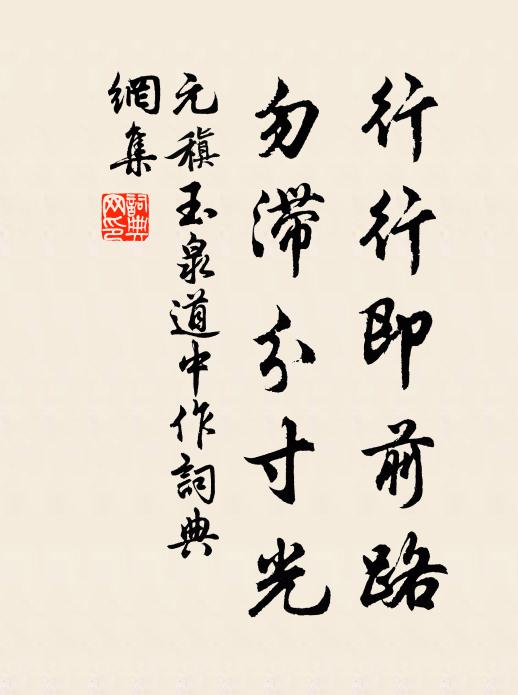 行行即前路
勿滯分寸光
元稹玉泉道中作詞典
網集
詞典網印